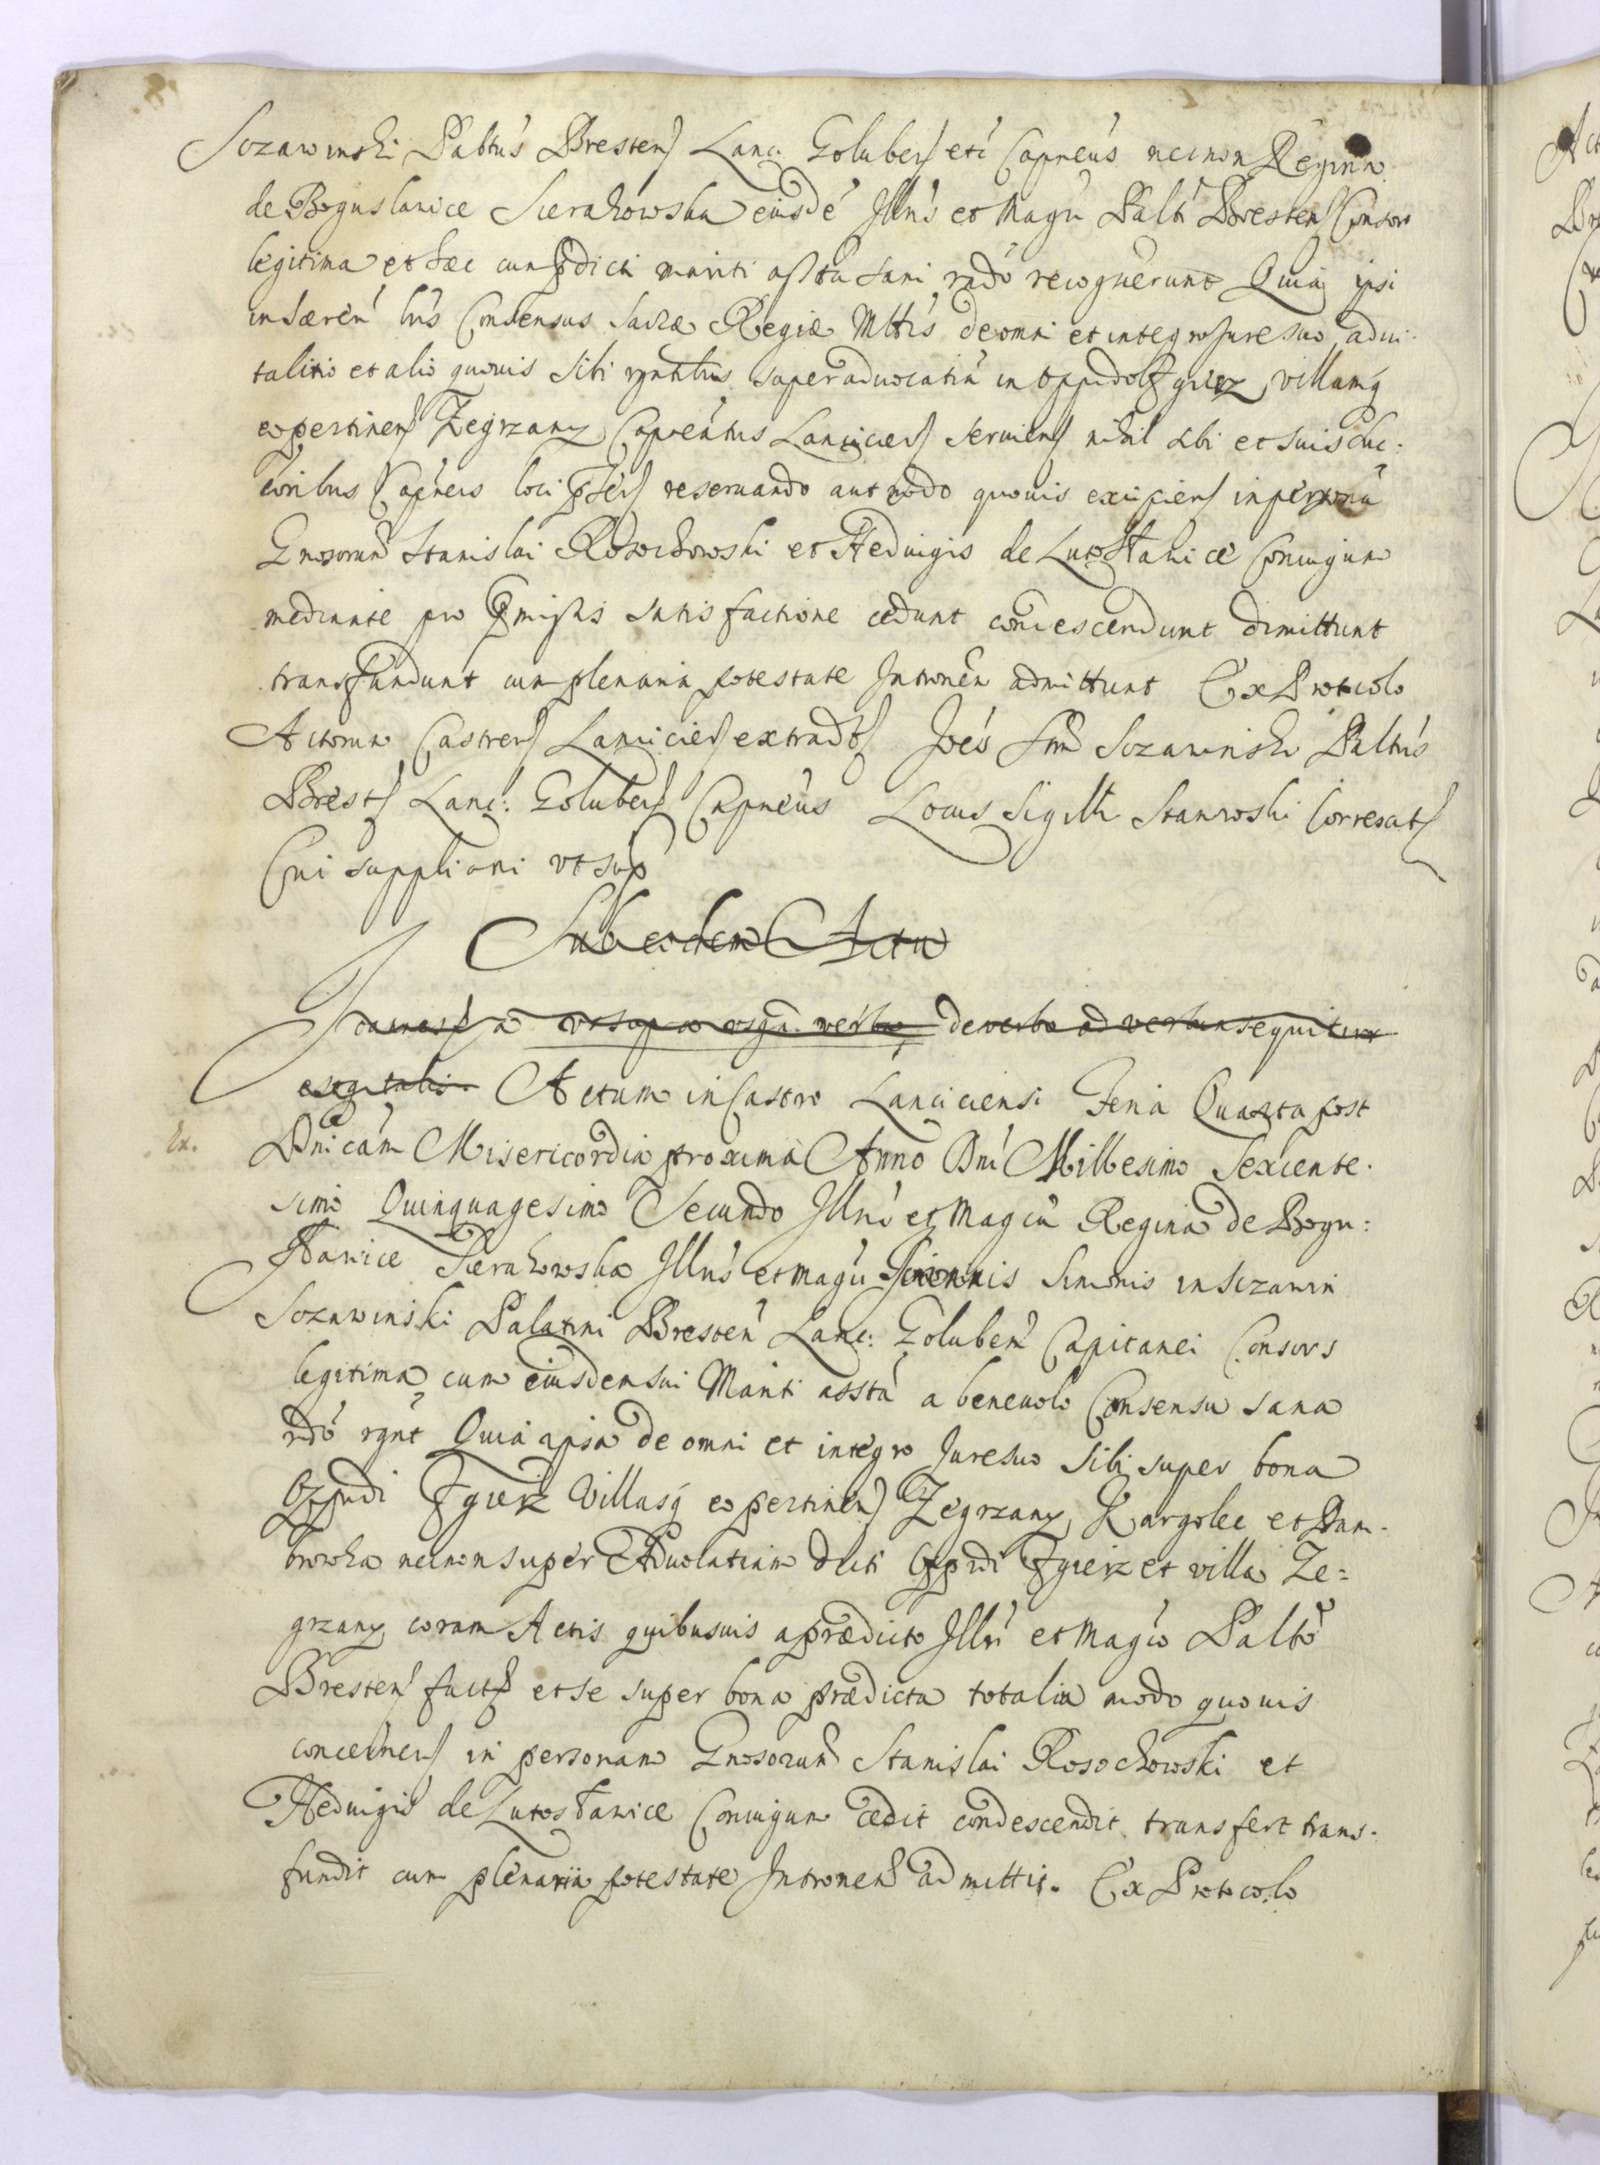 Sozawinski Paltus Bresten Lanc: Goluben etc Capneus necnon Regina
de Boguslavice Sierakowska eiusde Illus et Magci Palti Bresten Consors
legitima et haec cum pdicti mariti asstia sani rndo recognerunt Quia ipsi
inhaeren lris Consensus Sacrae Regiae Mttis de omni et integro Jure suo advi-
talitio et alio quovis sibi super advocatia in Oppido Zgierz, villamq
eo pertinen Zegrzany Capneatus Lancicien servien nihil sibi et suis suc:
coribus Capneis loci pten reservando aut modo quovis excipien in persona
Gnosorum Stanislai Rosochowski et Hedvigis de Lutoslavice Conjugum
mediante pro pmissis satisfactione cedunt condescendunt dimittunt
transfundunt cum plenaria potestate Intronen admittunt Ex Protocolo
Actorum Castren Lancicien extradt Joes Sim Sozawinski Paltus
Brest Lanc: Goluben Capneus Locus Sigilli Stanwoski Correxat
Cui supplioni ut sup
Sub eodem Actu
de verbo ad verbum sequitur
estq talis. Actum in Castro Lanciciensi Feria Quarta post
Ex.
Dnicam Misericordia proxima Anno Dni Millesimo Sexcente-
simo Quinquagesimo Secundo Illus et Magca Regina de Bogu:
slawice Sierakowska Illus et Magci Joannis Simonis in Sozawin
Sozawinski Palatini Bresten Lanc: Goluben Capitanei Consors
legitima cum eiusdem sui Mariti assta a benevolo Consensu sana
rdo rgnt Quia ipsa de omni et integro Jure suo sibi super bona
Oppidi Zgierz Villasq eo pertinen Zegrzany, Kargolec et Dam-
browka necnon super Advocatiam dicti Oppidi Zgierz et villa Ze=
grzany coram Actis quibusvis a praedicto Illri et Magco Palto
Bresten fact et se super bona praedicta totalia modo quovis
concernen in personam Gnosorum Stanislai Rosochowski et
Hedvigis de Lutoslawice Conjugum cedit condescendit transfert trans-
fundit cum plenaria potestate Intronen admittit. Ex Protocolo